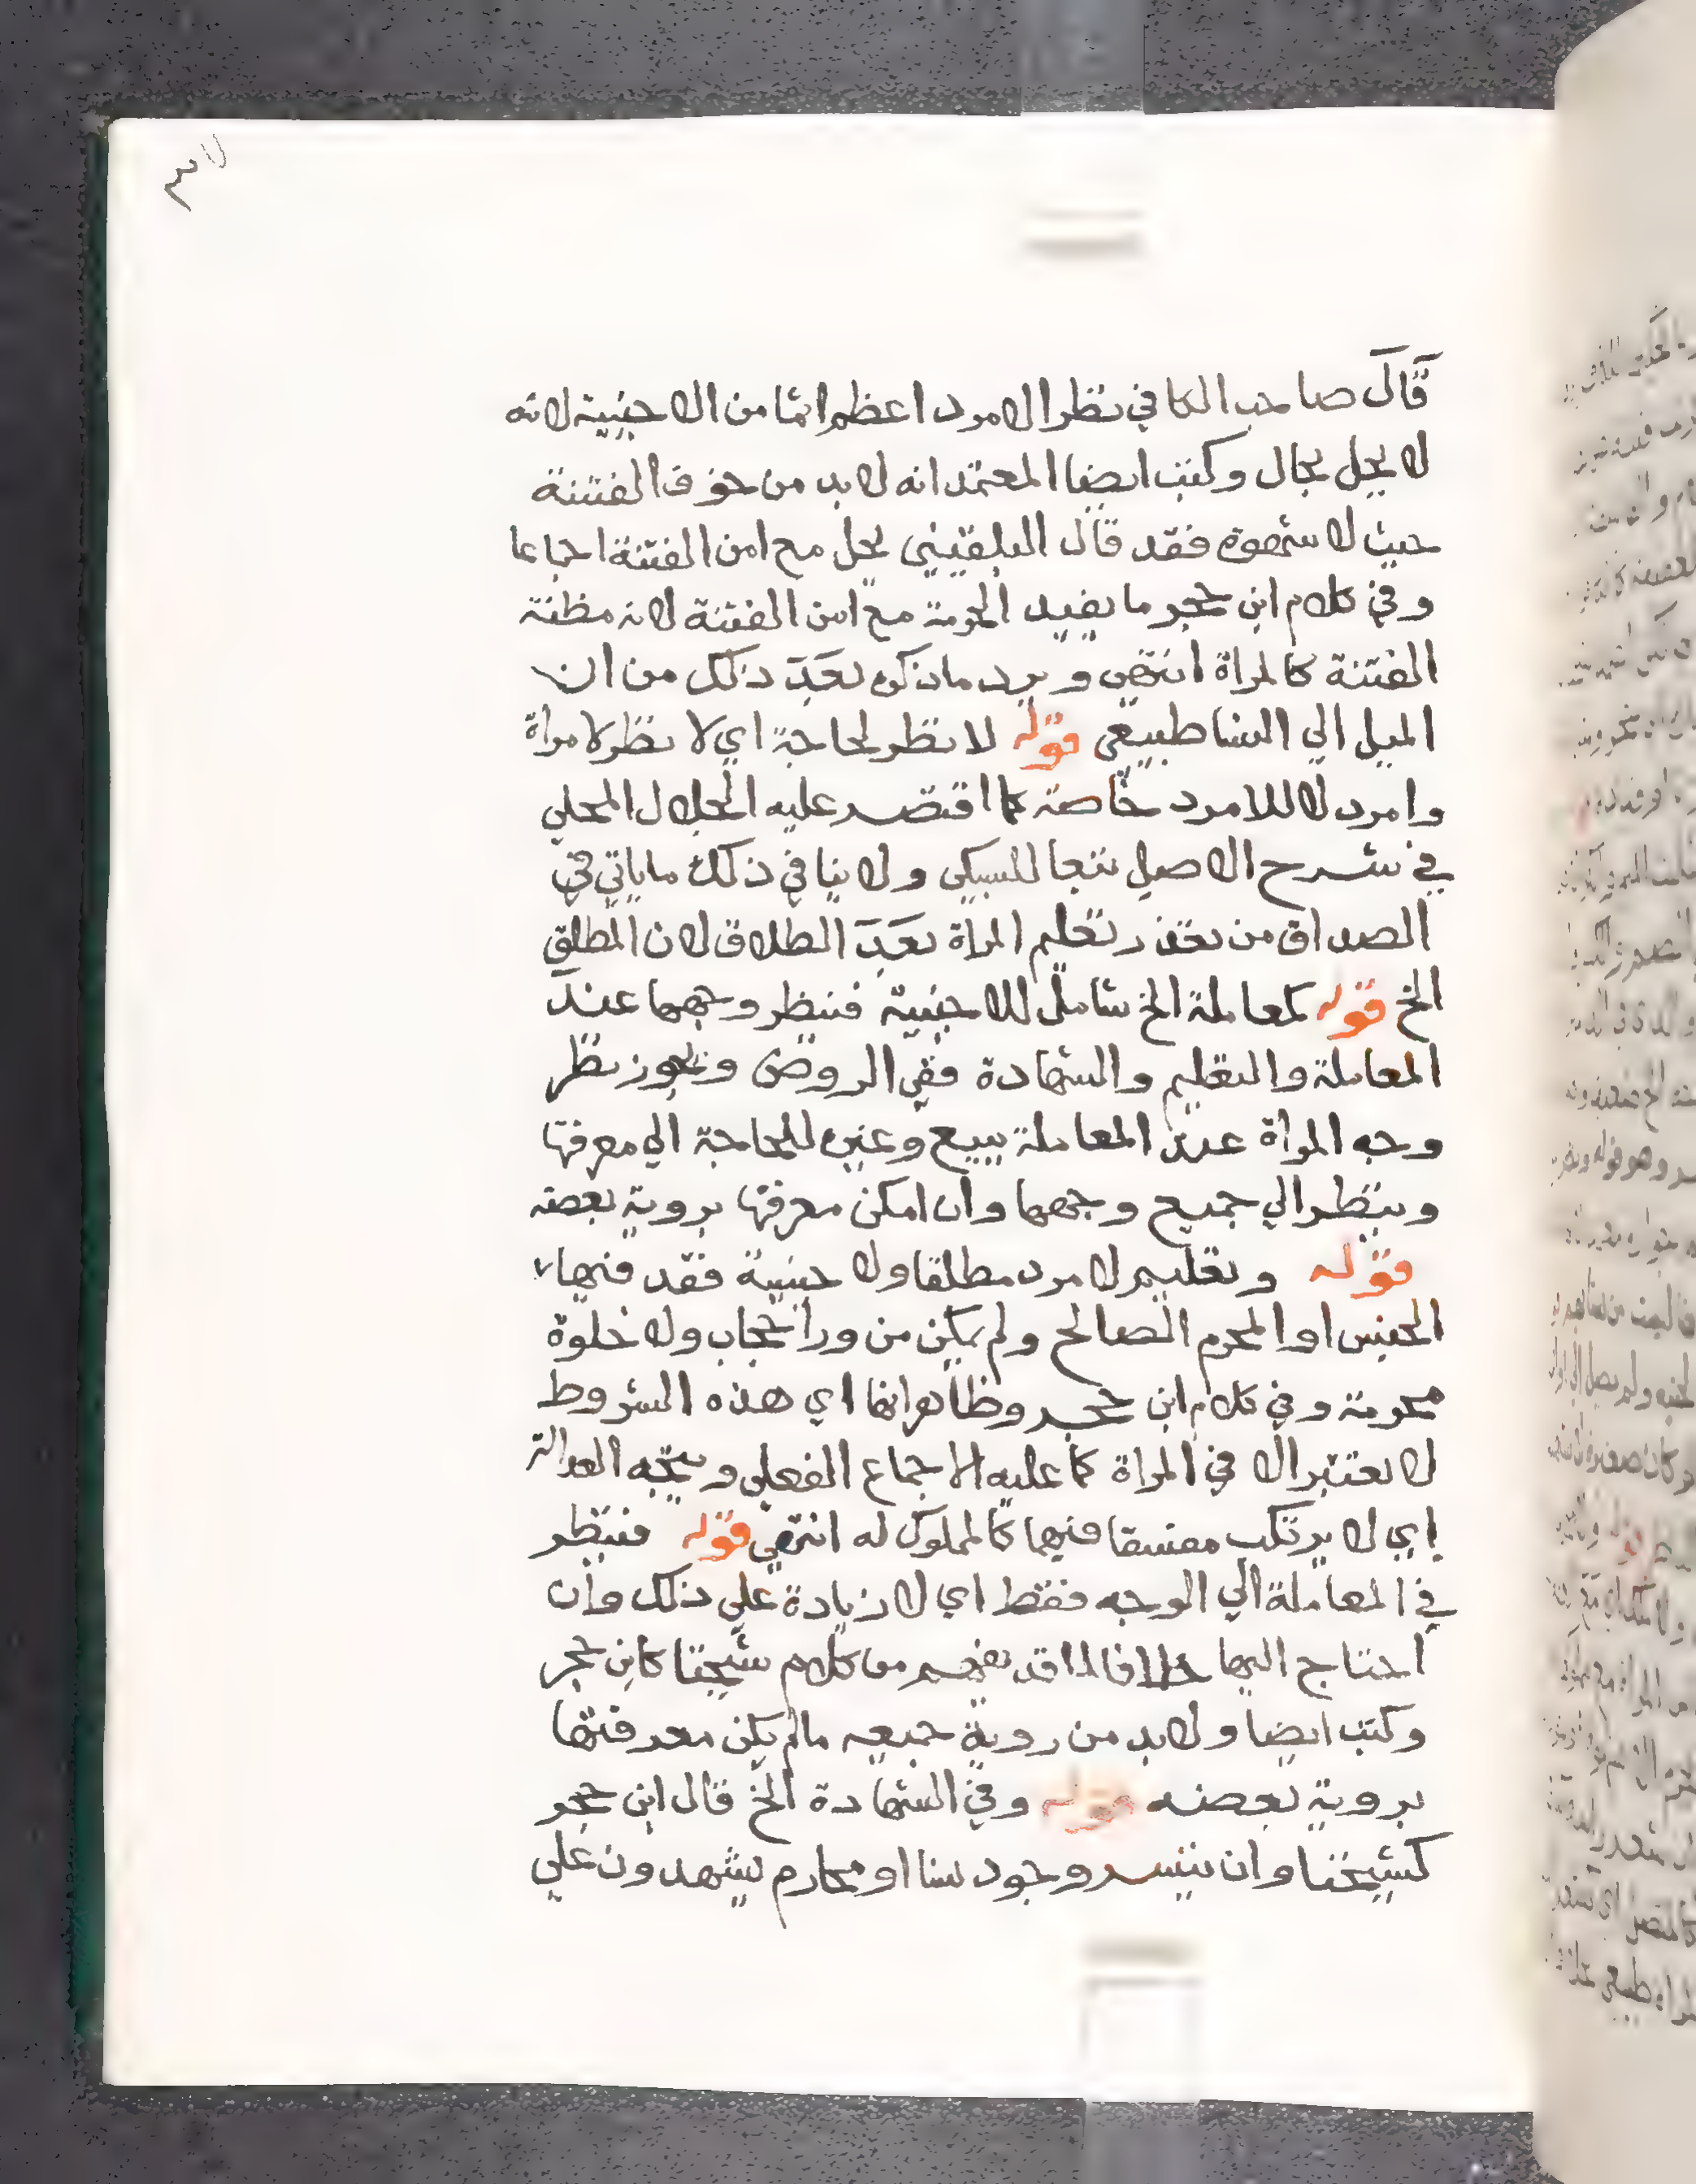 قال صاحب الكافي نظر الامرد اعظم اثما من الاجنبية لانه
لا يحل بحال وكتب ايضا المعتمد انه لا بد من خوف الفتنة
حيث لا شهوة فقد قال البلقيني يحل مع امن الفتنة اجماعا
وفي كلام ابن حجر ما يفيد الحرمة مع امن الفتنة لانه مظنة
الفتنة كالمراة انتهى ويرد ما ذكره بعد ذلك من ان
الميل الي النسا طبيعي قوله لا نظر لحاجة اي لا نظر لامراة
وامرد لا للامرد خاصة كما اقتصر عليه الجلال المحلي
في شرح الاصل تبعا للسبكي ولا ينافي ذلك ما ياتي في
الصداق من تعذر تعليم المراة بعد الطلاق لان المطلق
الخ قوله كمعاملة الخ شامل للاجنبية فينظر وجهها عند
المعاملة والتعليم والشهادة ففي الروض ويجوز نظر
وجه المراة عند المعاملة ببيع وغيره للحاجة الي معرفتها
وينظر الي جميع وجهها وان امكن معرفتها بروية بعضه
قوله وتعليم لامرد مطلقا ولاجنبية فقد فيها
الجنس او المحرم الصالح ولم يمكن من ورا حجاب ولا خلوة
محرمة وفي كلام ابن حجر وظاهر انها اي هذه الشروط
لا تعتبر الا في المراة كما عليه الاجماع الفعلي ويتجه العدالة
اي لا يرتكب مفسقا فيهما كالمملوك له انتهي قوله فينظر
في المعاملة الي الوجه فقط اي لا زيادة علي ذلك وان
احتاج اليها خلافا لما قد يفهم من كلام شيخنا كابن حجر
وكتب ايضا ولا بد من روية جميعه ما لم يكن معرفتها
بروية بعضه قوله وفي الشهادة الخ قال ابن حجر
كشيخنا وان تيسر وجود نسا او محارم يشهدون علي